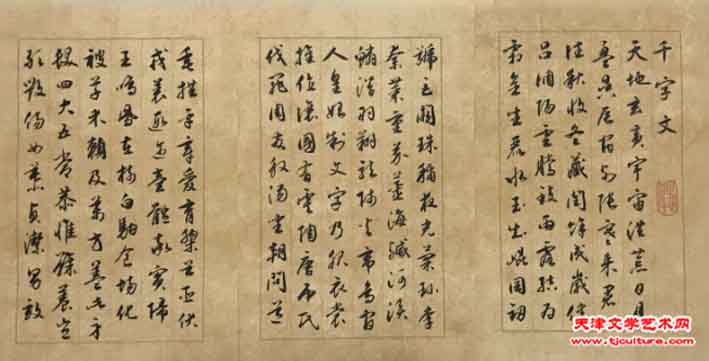 千字文
天地玄黃宇宙洪荒日月
盈昃辰宿列張寒来暑
往秋收冬藏閏餘成歲律
吕調陽雲騰致雨露結為
霜金生麗水玉出崑岡劒
號巨闕珠稱夜光菓珍李
柰菜重芥薑海鹹河淡
鱗潛羽翔龍師火帝鳥官
人皇始制文字乃服衣裳
推位讓國有虞陶唐弔民
伐罪周發殷湯坐朝問道
垂拱平章愛育黎首臣伏
戎羌遐邇壹體率賓歸
王鳴鳳在樹白駒食場化
被草木賴及萬方蓋此身
髮四大五常恭惟鞠養豈
敢毀傷女慕貞潔男效
天津文学艺术网
www.tjculture.com